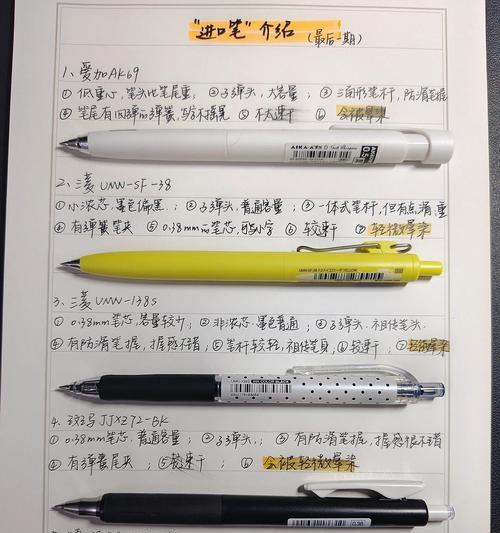 "进口笔"介绍 (最后一期)
1、爱加AK69
① 低重心,笔头比笔尾重 ② 子弹头,大容量 ③ 三角形笔杆,防滑笔握
④ 笔尾有低弹的弹簧,写字不摇晃 ⑤ 不太速干 ⑥ 会被晕染
2、三菱UMN-SF-38
① 小浓芯,墨色偏黑 ② 子弹头,普通容量 ③ 一体式笔杆,但有点滑,重
④ 有弹簧笔夹 ⑤ 0.38mm的笔芯,可写小字 ⑥ 较速干 ⑦ 轻微晕染
3、三菱UMN-138s
① 0.38mm笔芯,容量较少 ② 非浓芯,墨色普通 ③ 子弹头
④ 有防滑笔握,握感不错 ⑤ 笔杆较轻 ⑥ 较速干 ⑦ 轻微晕染
4、斑马JJXZ72-BK
① 0.38mm笔芯,普通容量 ② 子弹头 ③ 有防滑笔握,握感很不错
④ 有弹簧尾夹 ⑤ 较速干 ⑥ 会被轻微晕染